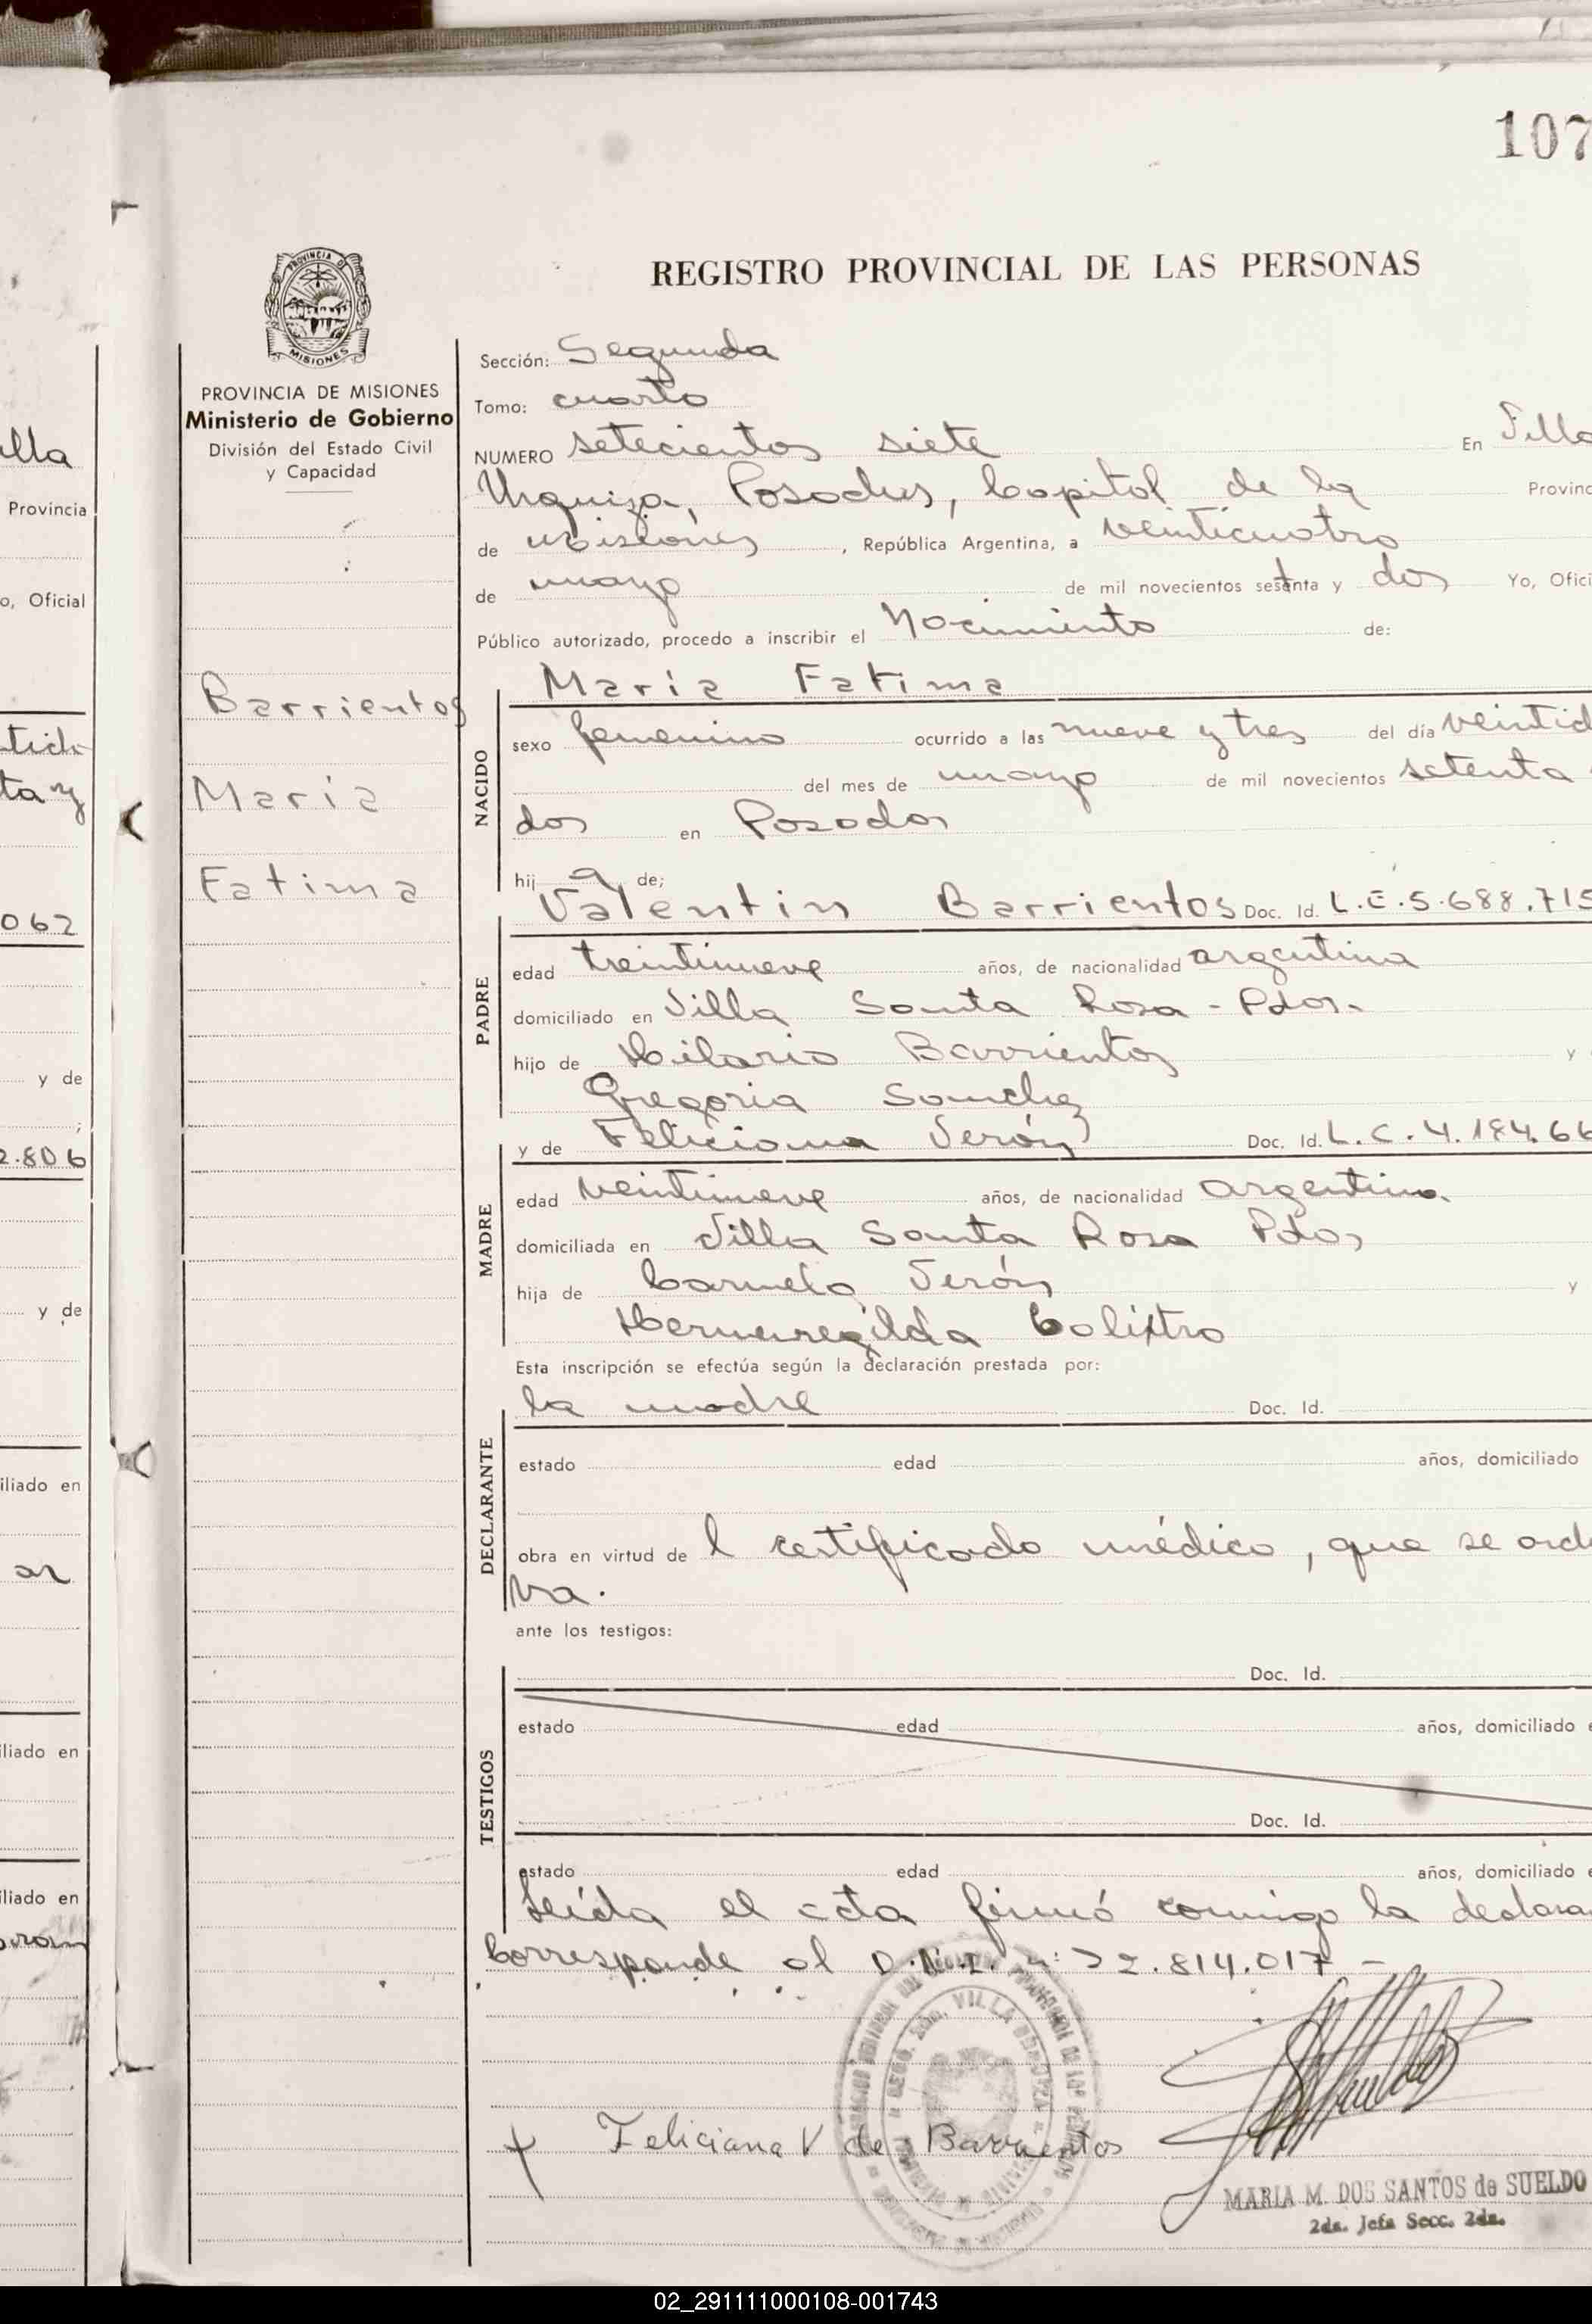 107
REGISTRO PROVINCIAL DE LAS PERSONAS
PROVINCIA DE MISIONES
Ministerio de Gobierno
División del Estado Civil
y Capacidad
Barrientos
María
Fatima
Sección: Segunda
Tomo: cuarto
NUMERO setecientos siete En Villa
Urquiza, Posadas, Capital de la Provinc
de Misiones, República Argentina, a veinticuatro
de mayo de mil novecientos setenta y dos Yo, Ofici
Público autorizado, procedo a inscribir el Nacimiento de:
NACIDO
María Fatima
sexo femenino ocurrido a las nueve y tres del día veintid
del mes de mayo de mil novecientos setenta
dos en Posadas
hij a de;
PADRE
Valentin Barrientos Doc. Id. L.E.5.688.715
edad treintinueve años, de nacionalidad argentina
domiciliado en Villa Santa Rosa - Pdas.
hijo de Hilario Barrientos y
Gregoria Sanchez
MADRE
y de Feliciana Verón Doc. Id. L.C.4.184.66
edad veintinueve años, de nacionalidad argentina
domiciliada en Villa Santa Rosa Pdas
hija de Carmelo Verón y
Hermeregilda Calixtro
Esta inscripción se efectúa según la declaración prestada por:
DECLARANTE
la madre Doc. Id.
estado edad años, domiciliado
obra en virtud de l certificado médico, que se archi
va.
ante los testigos:
TESTIGOS
Doc. Id.
estado edad años, domiciliado e
Doc. Id.
estado edad años, domiciliado e
Leída el acta firmó conmigo la declaran
Corresponde al D.N.I. n: 22.814.017 -
Feliciana V de Barrientos
MARIA M. DOS SANTOS de SUELDO
2da. Jefa Secc. 2da.
lla
Provincia
o, Oficial
ta y
062
y de
2.806
y de
iliado en
liado en
liado en
02_291111000108-001743